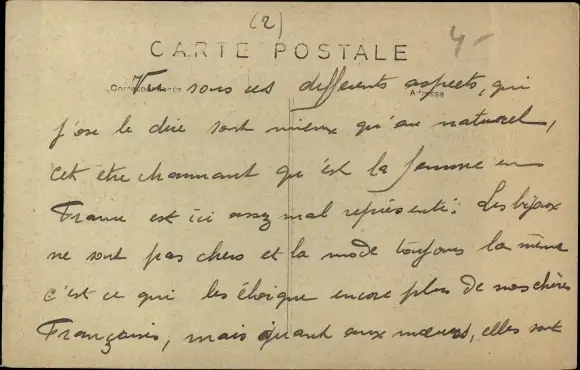 (2)
4-
CARTE POSTALE
Correspondance
Adresse
Vue sous ces différents aspects, qui
j'ose le dire sont mieux qu'au naturel,
cet être charmant qu'est la femme en
France est ici assez mal représenté. Les bijoux
ne sont pas chers et la mode toujours la même
c'est ce qui les éloigne encore plus de nos chères
Françaises, mais quant aux mœurs, elles sont